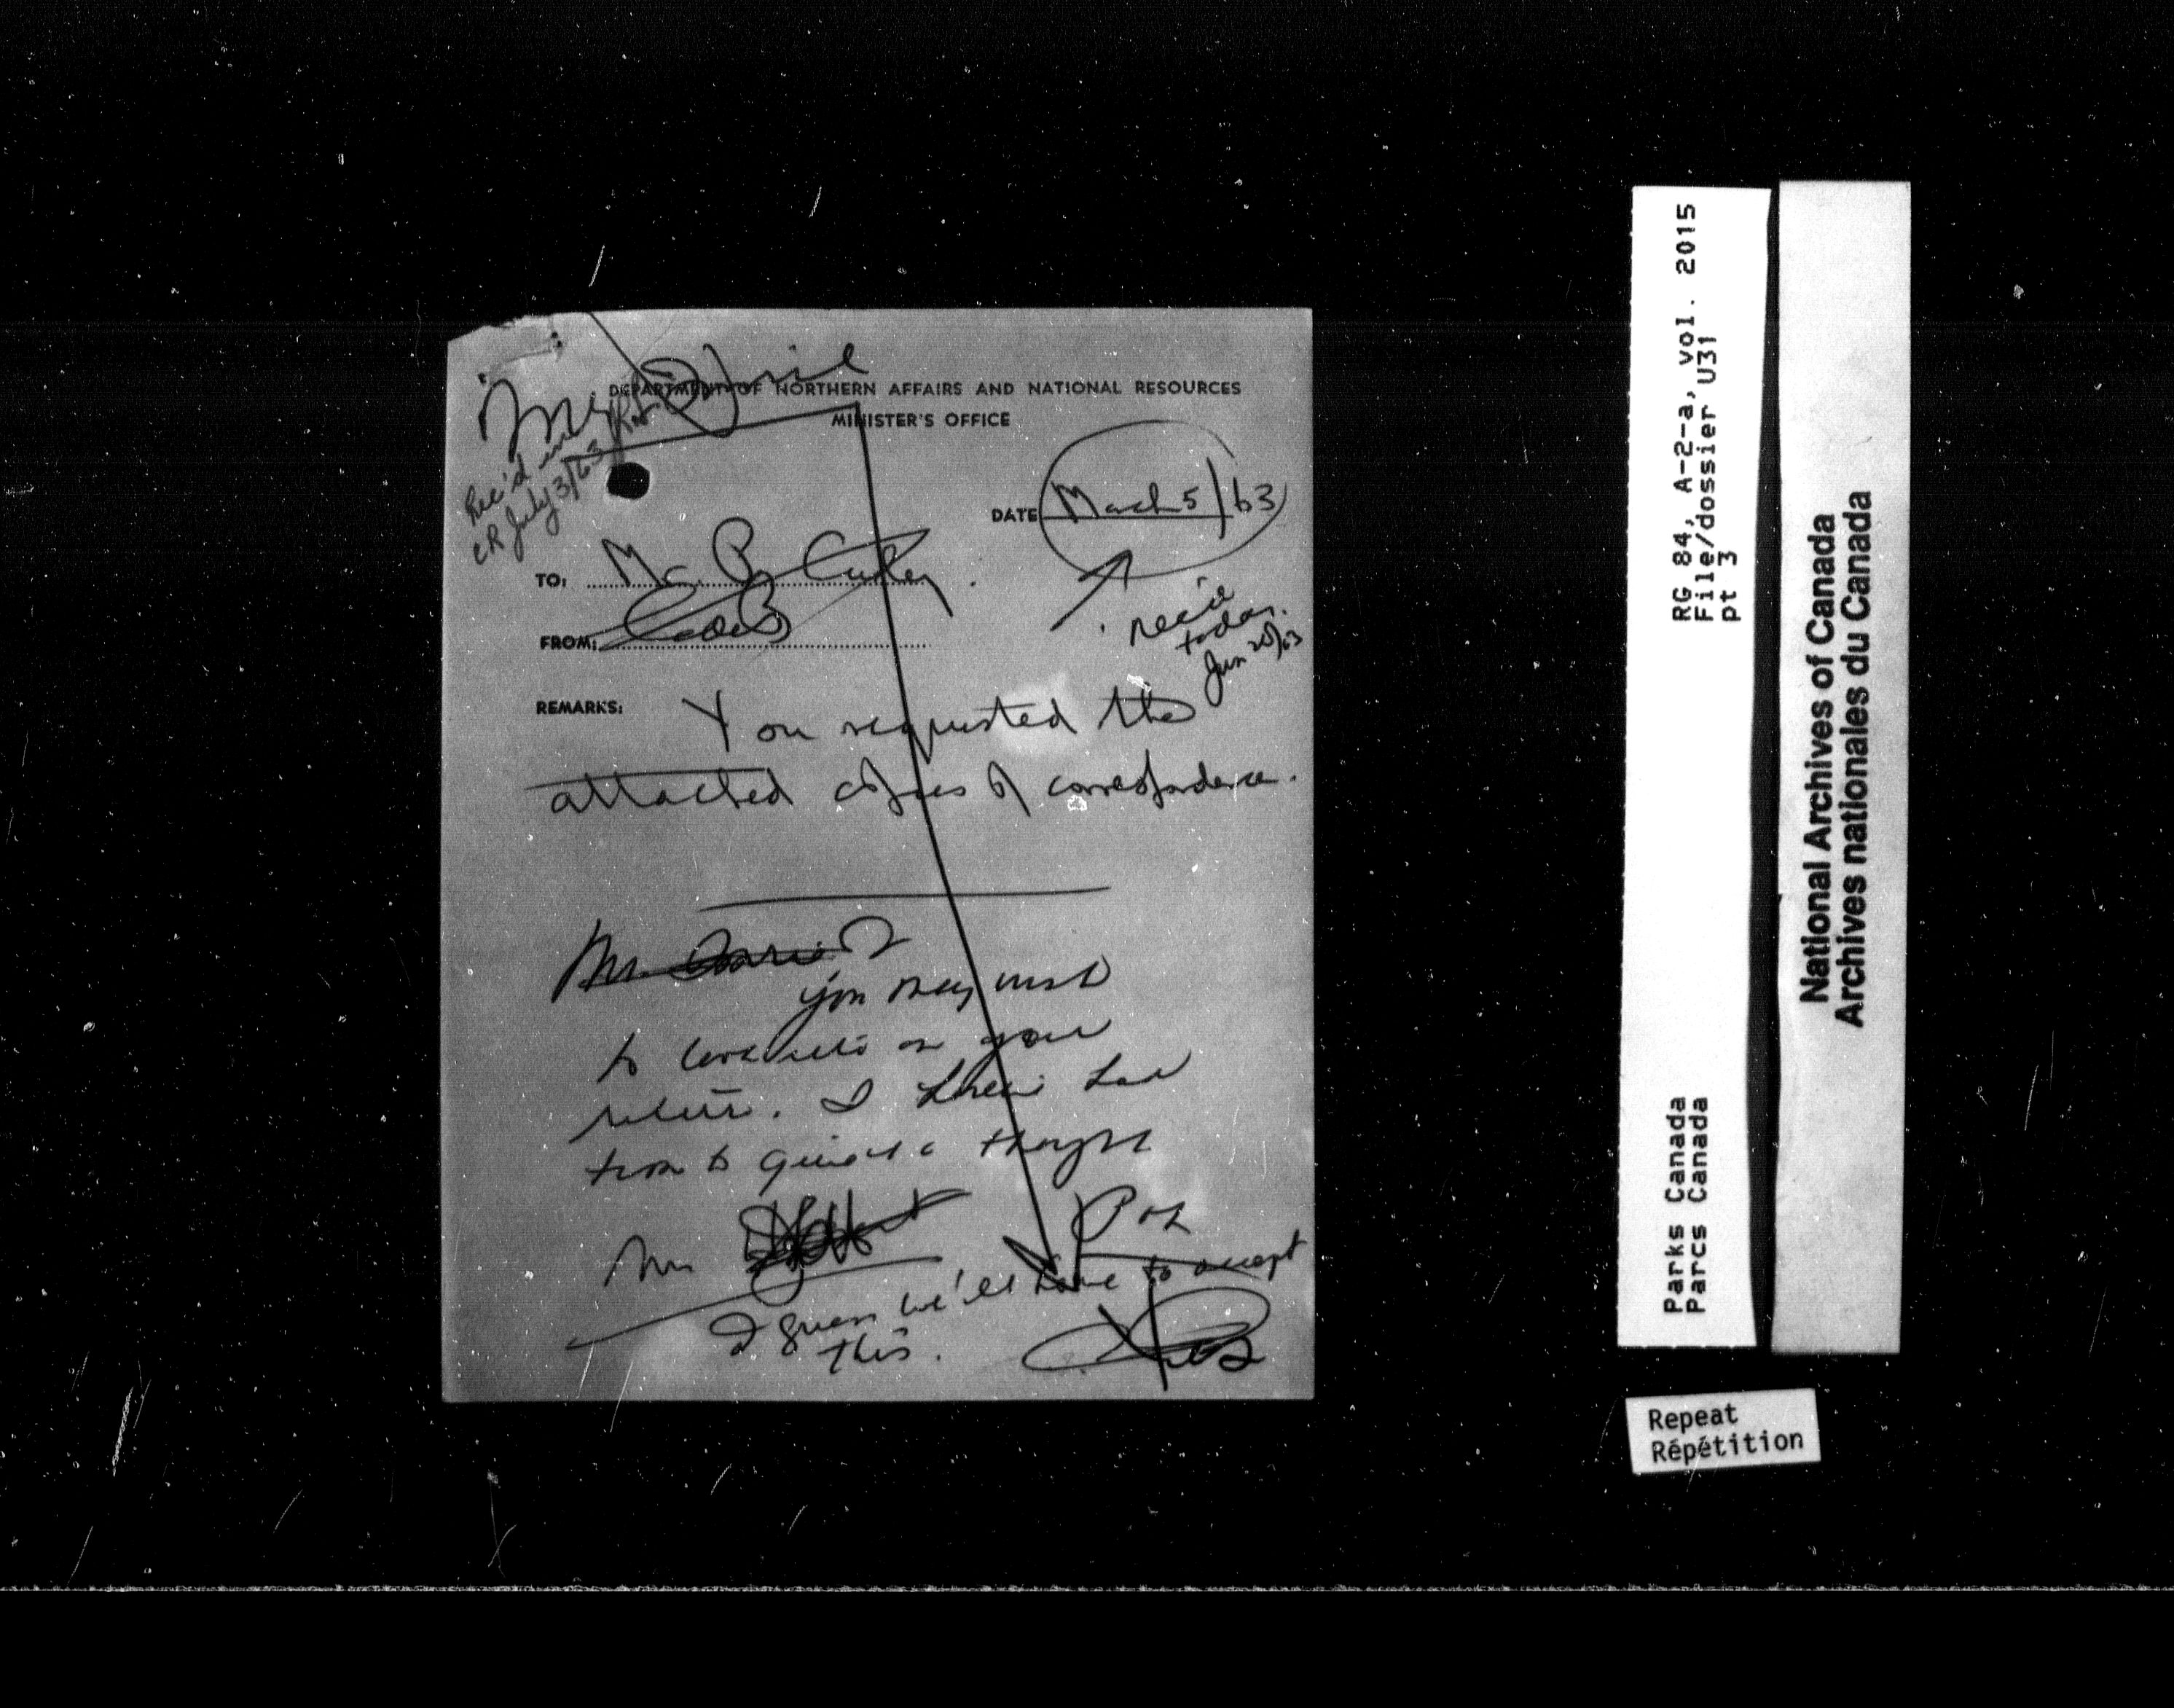 DEPARTMENT OF NORTHERN AFFAIRS AND NATIONAL RESOURCES
MINISTER'S OFFICE
Rec'd in
CR July 3/63
DATE March 5/63
TO: Mr. P.
FROM:
rec'd
today.
Jun 20/63
REMARKS: You requested the
attached copies of correspondence.
Mr.
you may wish
to look into on your
return. I haven't had
time to give it a thought
Mr
I guess we'll have to accept
this.
RG 84, A-2-a, vol. 2015
File/dossier U31
pt 3
Parks Canada
Parcs Canada
National Archives of Canada
Archives nationales du Canada
Repeat
Répétition